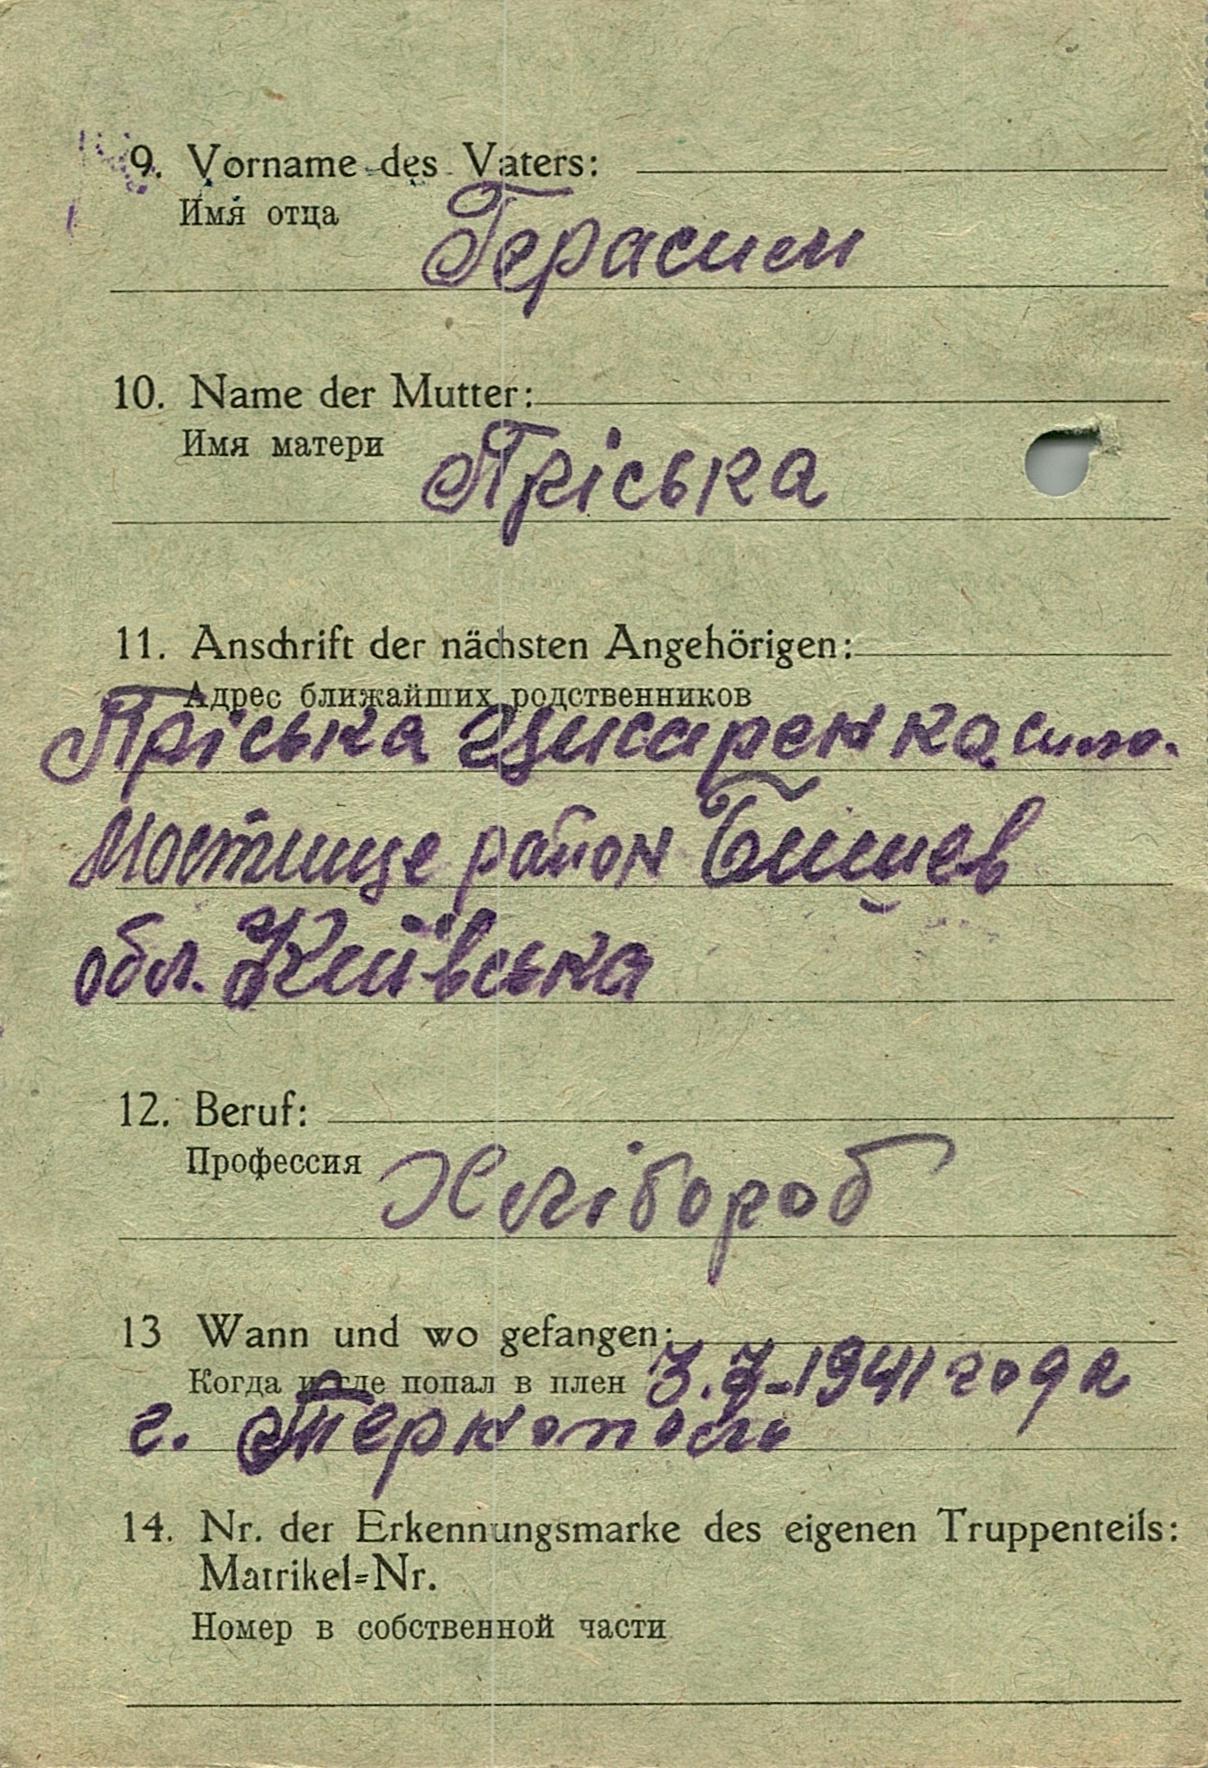 9. Vorname des Vaters:
Имя отца
Герасим
10. Name der Mutter:
Имя матери
Пріська
11. Anschrift der nächsten Angehörigen:
Адрес ближайших родственников
Пріська
Мостище район Бишев
обл. Київська
12. Beruf:
Профессия
Хлібороб
13 Wann und wo gefangen:
Когда и где попал в плен 3.7-1941 года
г. Тернополь
14. Nr. der Erkennungsmarke des eigenen Truppenteils:
Matrikel=Nr.
Номер в собственной части